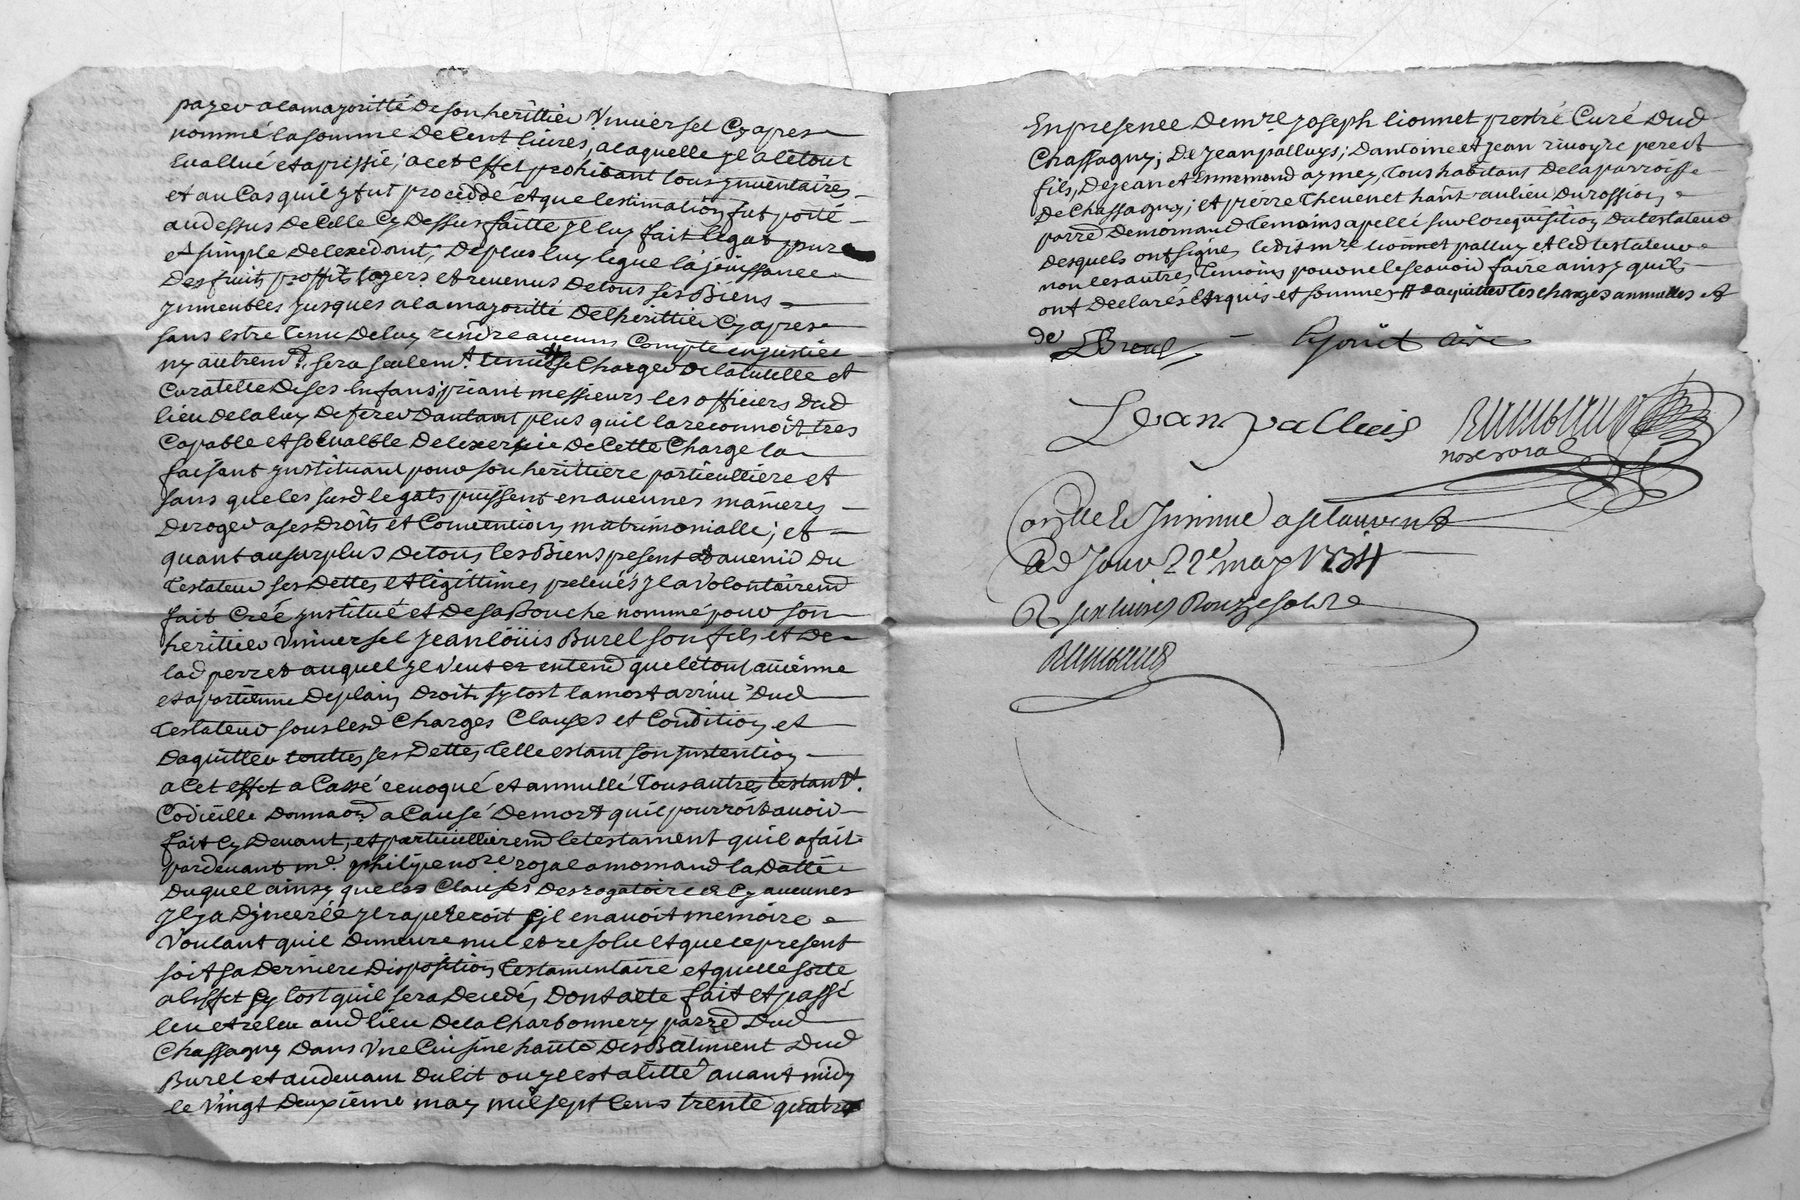 payer a la majoritté de son herittier Vniversel Cy apres
nommé la somme de Cent livres, a laquelle Jl a letout
Evallué et apressié, a cet effet prohibant tous jnventaires
et au Cas quil y fut proceddé et que lestimation fut porté
au dessus de Celle Cy dessus faitte Jl luy fait legat pure
et simple de lexedent, de plus luy legue la jouissance
des fruits proffits loyers et revenus de tous ses Biens
jmmeubles jusques a la majoritté de lherittier Cy apres
sans estre tenu de luy rendre aucuns Compte en justice
ny autremt. sera seulemt. Charger de la tutelle et
Curatelle de ses Enfans, priant messieurs les officiers dud
lieu de la luy deferer dautant plus quil la reconnoit tres
Capable et solvalble de lexersice de Cette Charge la
faisant jnstituant pour son herittiere particulliere et
sans que les susd legats puissent en aucunes manieres
deroger a ses droits et Conventions matrimonialle; et
quant au surplus de tous les Biens present et avenir du
testateur ses dettes et légittimes prelevés jl a volontairemd
fait Créé jnstitué et de sa Bouche nommé pour son
heritier Vniversel Jean loüis Burel son fils et de
lad perret auquel Jl veut et entend que letout avienne
et apartienne de plain droit sytost la mort arrivé dud
testateur sous lesd Charges Clauses et Condition et
daquitter touttes ses dettes telle estant son jntention
a Cet effet a Cassé revoqué et annullé tous autres testamt.
Codicille donnaon a Cause de mort quil pourroit avoir
fait Cy devant, et particullieremd le testament quil a fait
pardevant me. philipe nore. royal a mornand la datte
duquel ainsy que les Clauses desrogatoire sy aucunes
Jl y a djncerée Jl rapeleroit sjl en avoit memoire
Voulant quil demeure nul et resolu et que le present
soit sa derniere disposition testamentaire et quelle sorte
a Effet sy tost quil sera decedé, dont acte fait et passé
leu et releu aud lieu de la Charbonnery parred dud
Chassagny dans Vne Cuisine haute des Batiment dud
Burel et audevant du lit ou jl est alitté avant midy
le Vingt deuxieme may mil sept Cens trente quatre
En presence de mre Joseph lionnet prestré Curé dud
Chassagny; de Jean palluys; dantoine et jean rivoyre pere et
fils, de jean et Ennemond aymey, tous habitans de la parroisse
de Chassagny; et pierre thevenet hant au lieu du rossion
parred de mornand temoins apellé sur la requisition du testateur
desquels ont signé ledit mre lionnet palluy et led testateur
non les autres temoins pour ne le scavoir faire ainsy quils
ont declarés Enquis et sommes # daquitter les charges annuelles et
de Burel Lyonet Curé
Jean palluis
not royal
Controllé Jnsinué a st laurent
led Jour 22e may 1734
R six livres Douze sols